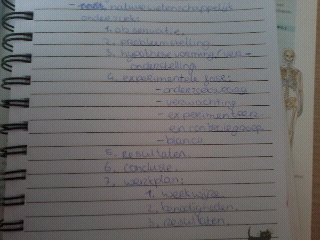 - natuurwetenschappelijk
onderzoek:
1. observatie
2. probleemstelling
3. hypothesevorming/ver-
onderstelling
4. experimentele fase:
- onderzoeksvraag
- verwachting
- experimenteer
en controlegroep
- blanco
5. resultaten
6. conclusie.
7. werkplan:
1. werkwijze
2. benodigheden
3. resultaten